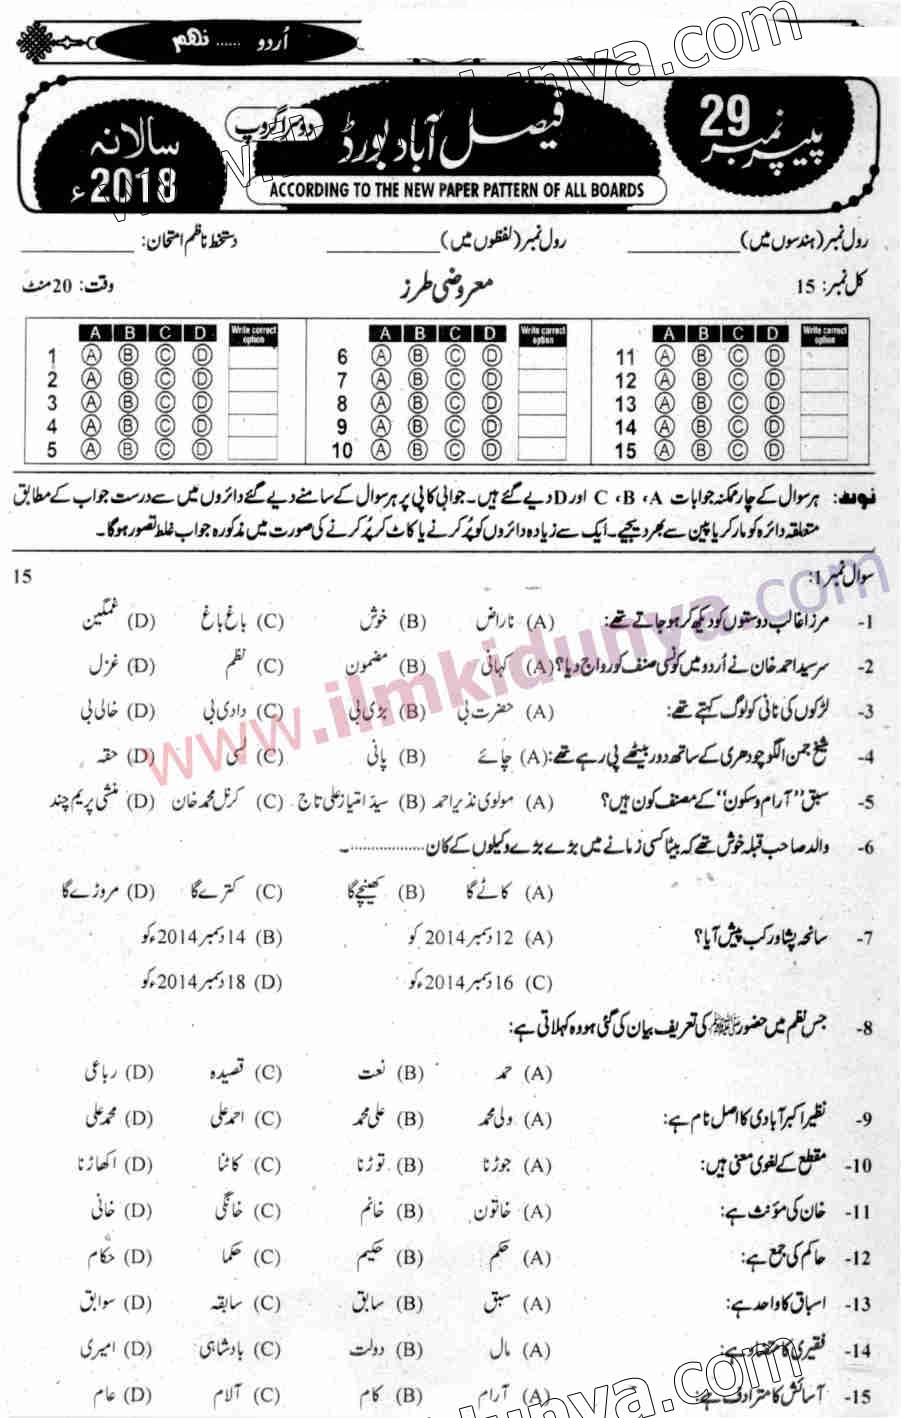 اُردو ...... نہم
پیپر نمبر 29
فیصل آباد بورڈ
دوسرا گروپ
سالانہ 2018ء
ACCORDING TO THE NEW PAPER PATTERN OF ALL BOARDS
رول نمبر (ہندسوں میں) ____________ رول نمبر (لفظوں میں) ____________ دستخط ناظم امتحان: ____________
کل نمبر: 15 معروضی طرز وقت: 20 منٹ
A B C D Write correct option A B C D Write correct option A B C D Write correct option
1 A B C D 6 A B C D 11 A B C D
2 A B C D 7 A B C D 12 A B C D
3 A B C D 8 A B C D 13 A B C D
4 A B C D 9 A B C D 14 A B C D
5 A B C D 10 A B C D 15 A B C D
نوٹ: ہر سوال کے چار ممکنہ جوابات A، B، C اور D دیے گئے ہیں۔ جوابی کاپی پر ہر سوال کے سامنے دیے گئے دائروں میں سے درست جواب کے مطابق
متعلقہ دائرہ کو مارکر یا پین سے بھر دیجیے۔ ایک سے زیادہ دائروں کو پُر کرنے یا کاٹ کر پُر کرنے کی صورت میں مذکورہ جواب غلط تصور ہوگا۔
سوال نمبر 1: 15
1- مرزا غالب دوستوں کو دیکھ کر ہو جاتے تھے: (A) ناراض (B) خوش (C) باغ باغ (D) غمگین
2- سر سید احمد خان نے اُردو میں کونسی صنف کو رواج دیا؟ (A) کہانی (B) مضمون (C) نظم (D) غزل
3- لڑکوں کی نانی کو لوگ کہتے تھے: (A) حضرت بی (B) بڑی بی (C) دادی بی (D) خالی بی
4- شیخ جمن الگو چودھری کے ساتھ دور بیٹھے پی رہے تھے: (A) چائے (B) پانی (C) لسی (D) حقہ
5- سبق "آرام و سکون" کے مصنف کون ہیں؟ (A) مولوی نذیر احمد (B) سید امتیاز علی تاج (C) کرنل محمد خان (D) منشی پریم چند
6- والد صاحب قبلہ خوش تھے کہ بیٹا کسی زمانے میں بڑے بڑے وکیلوں کے کان ..................۔
(A) کاٹے گا (B) کھینچے گا (C) کترے گا (D) مروڑے گا
7- سانحہ پشاور کب پیش آیا؟ (A) 12 دسمبر 2014 کو (B) 14 دسمبر 2014ء کو
(C) 16 دسمبر 2014ء کو (D) 18 دسمبر 2014ء کو
8- جس نظم میں حضورﷺ کی تعریف بیان کی گئی ہو وہ کہلاتی ہے:
(A) حمد (B) نعت (C) قصیدہ (D) رباعی
9- نظیر اکبر آبادی کا اصل نام ہے: (A) ولی محمد (B) علی محمد (C) احمد علی (D) محمد علی
10- مقطع کے لغوی معنی ہیں: (A) جوڑنا (B) توڑنا (C) کاٹنا (D) اکھاڑنا
11- خان کی مؤنث ہے: (A) خاتون (B) خانم (C) خانگی (D) خانی
12- حاکم کی جمع ہے: (A) حکم (B) حکیم (C) حکما (D) حکام
13- اسباق کا واحد ہے: (A) سبق (B) سابق (C) سابقہ (D) سوابق
14- فقیری کا متضاد ہے: (A) مال (B) دولت (C) بادشاہی (D) امیری
15- آسائش کا مترادف ہے: (A) آرام (B) کام (C) آلام (D) عام
www.ilmkidunya.com